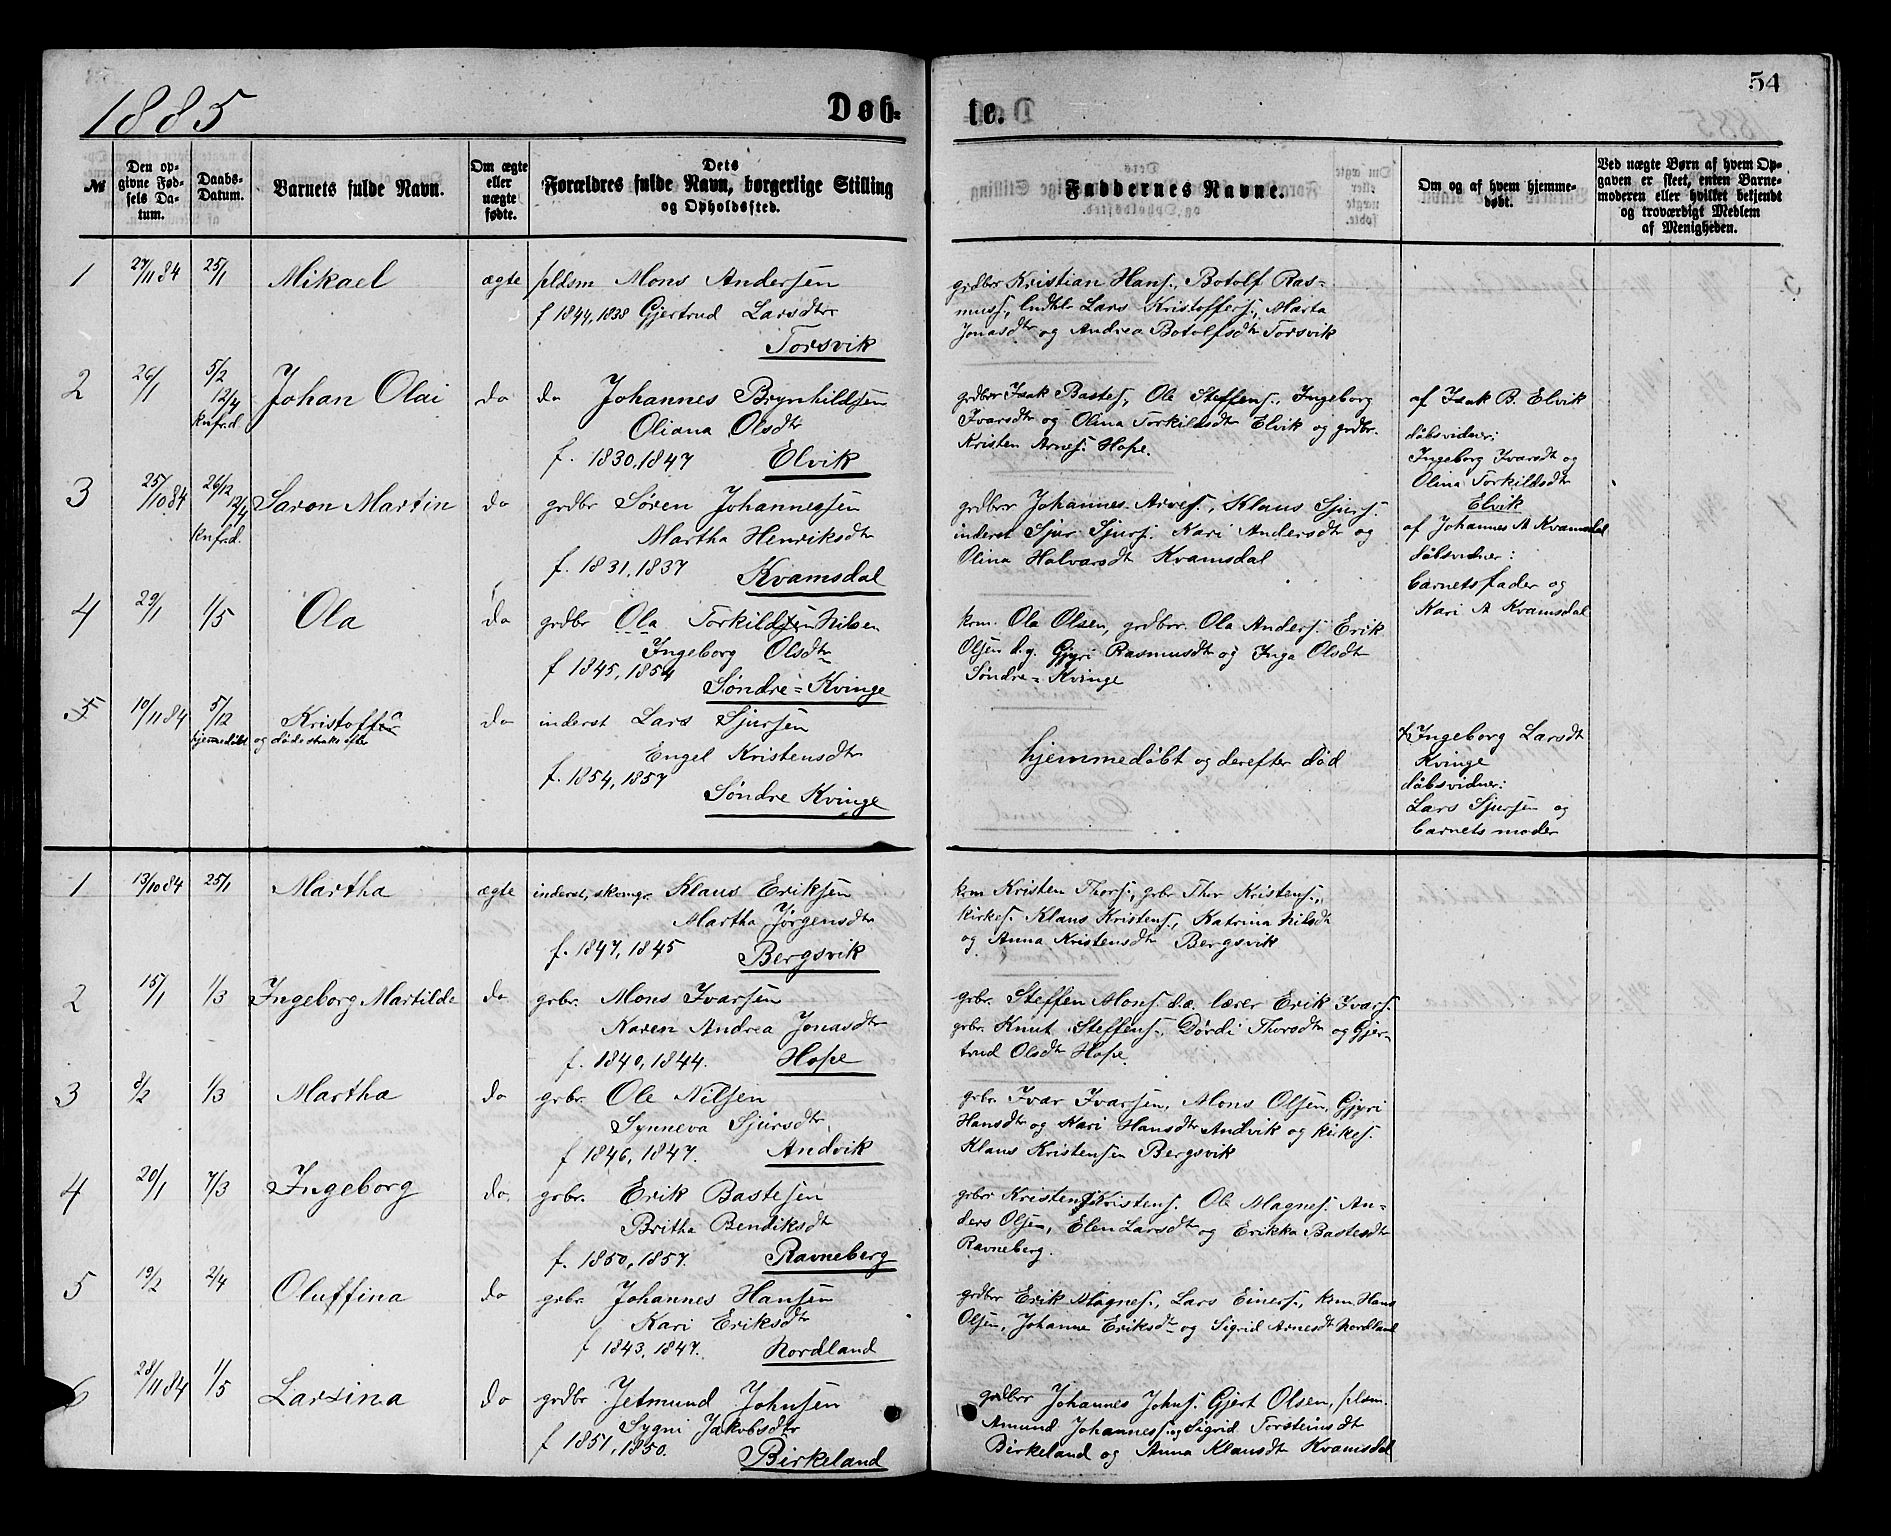 1885
Døb-
te.
54
№
Den op-
givne Fød-
sels Da-
tum.
Daabs-
Datum.
Barnets fulde Navn.
Om ægte
eller
uægte
fødte.
Dets
Forældres fulde Navn, borgerlige Stilling
og Opholdssted.
Faddernes Navne.
Om og af hvem hjemme-
døbt.
Ved uægte Børn af hvem Op-
gaven er skeet, enten Barne-
moderen eller hvilket bekjendt
og troværdigt Medlem
af Menigheden.
1
27/11 84
25/1
Mikael
ægte
pldsm Mons Andersen
f 1844, 1838 Gjertrud Larsdtr
Torsvik
grdbr Kristian Hans., Botolf Ras-
muss, Lars Kristoffers., Marta
Jonasdtr og Andrea Botolfsdtr Torsvik
2
26/1
5/2
12/4
knfrd.
Johan Olai
do
do Johannes Brynhildsen
Oliana Olsdtr
f. 1830, 1847 Elvik
grdbr Isak Bastes., Ole Steffens., Ingeborg
Ivarsdtr og Olina Torkildsdtr Elvik og grdbr.
Kristen Arnes. Hope.
af Isak B. Elvik
døbsvidner:
Ingeborg Ivarsdt og
Olina Torkildsdt
Elvik
3
25/10 84
26/12
2/4
knfrd.
Saron Martin
do
grdbr Søren Johannessen
Martha Henriksdtr
f. 1831, 1837 Kvamsdal
grdbrr Johannes Arves., Klaus Sjurs.
inderst Sjur Sjurs. Kari Andersdtr og
Olina Halvarsdt Kvamsdal
af Johannes A Kvamsdal
døbsvidner:
barnetsfader og
Kari A Kvamsdal
4
29/1
1/5
Ola
do
grdbr Ola Torkildsen Nilsen
Ingeborg Olsdtr
f 1845, 1854
Søndre-Kvinge
krm. Ola Olsen, grdbrr. Ola Anders. Erik
Olsen d.y. Gjyri Rasmusdtr og Inga Olsdtr
Søndre-Kvinge
5
10/11 84
5/12
hjemmedøbt og døde straks efter
Kristoffa
do
inderst Lars Sjursen
Engel Kristensdtr
f. 1854, 1857
Søndre Kvinge
hjemmedøbt og derefter død
af Ingeborg Larsdt
Kvinge
døbsvidner:
Lars Sjursen og
barnets moder
1
13/10 84
25/1
Martha
ægte
inderst, skomgr. Klaus Eriksen
Martha Jørgensdtr
f. 1847, 1845 Bergsvik
krm Kristen Thors., grbr Thor Kristens.,
kirkes. Klaus Kristens., Katrina Nilsdt
og Anna Kristensdtr Bergsvik
2
15/1
1/3
Ingeborg Martilde
do
grbr. Mons Ivarsen
Karen Andrea Jonasdtr
f. 1840, 1844. Hope
grbr. Steffen Mons. d.æ. lærer Erik Ivars.
grbr. Knut Steffens., Dørdi Thorsdtr og Gjer-
trud Olsdt Hope.
3
8/2
1/3
Martha
do
grbr. Ole Nilsen
Synneva Sjursdtr,
f 1846, 1847. Andvik
grbr. Ivar Ivarsen, Mons Olsen, Gjyri
Hansdtr og Kari Hansdtr Andvik og kirkes.
Klaus Kristensen Bergsvik
4
20/1
7/3
Ingeborg
do.
grbr. Erik Bastesen
Britha Bendiksdt
f. 1850, 1857. Ravneberg
grbrr Kristen Kristens. Ole Magnes. An-
ders Olsen, Elen Larsdtr og Erikka Bastesdtr
Ravneberg.
5
19/2
2/4
Oluffina
do
grbr. Johannes Hansen
Kari Eriksdtr
f 1843, 1847. Nordland
grdbr Erik Magnes., Lars Einers., krm. Hans
Olsen, Johanne Eriksdtr og Sigrid Arnesdt Nordland
6
28/11 84
1/5
Larsina
do
grdbr Jetmund Johnsen
Sygni Jakobsdtr
f 1851, 1850.
Birkeland
grdbrr Johannes Johns. Gjert Olsen, plsm.
Amund Johanness. og Sigrid Torsteinsdt
Birkeland og Anna Klausdt Kvamsdal